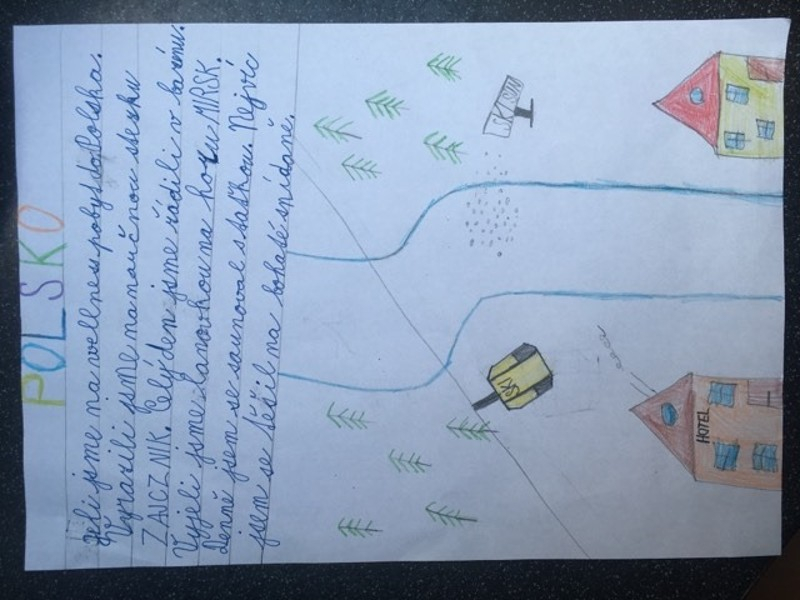 POLSKO
Jeli jsme na wellnes pobyt do Polska.
Vyrazili jsme na naučnou stezku
ZAJCZNIK. Celý den jsme řádili v bazénu.
Vyjeli jsme lanovkou na horu MIRSK.
Denně jsem se saunoval s taťkou. Nejvíc
jsem se těšil na bohaté snídaně.
SKI SUN
SKI
HOTEL